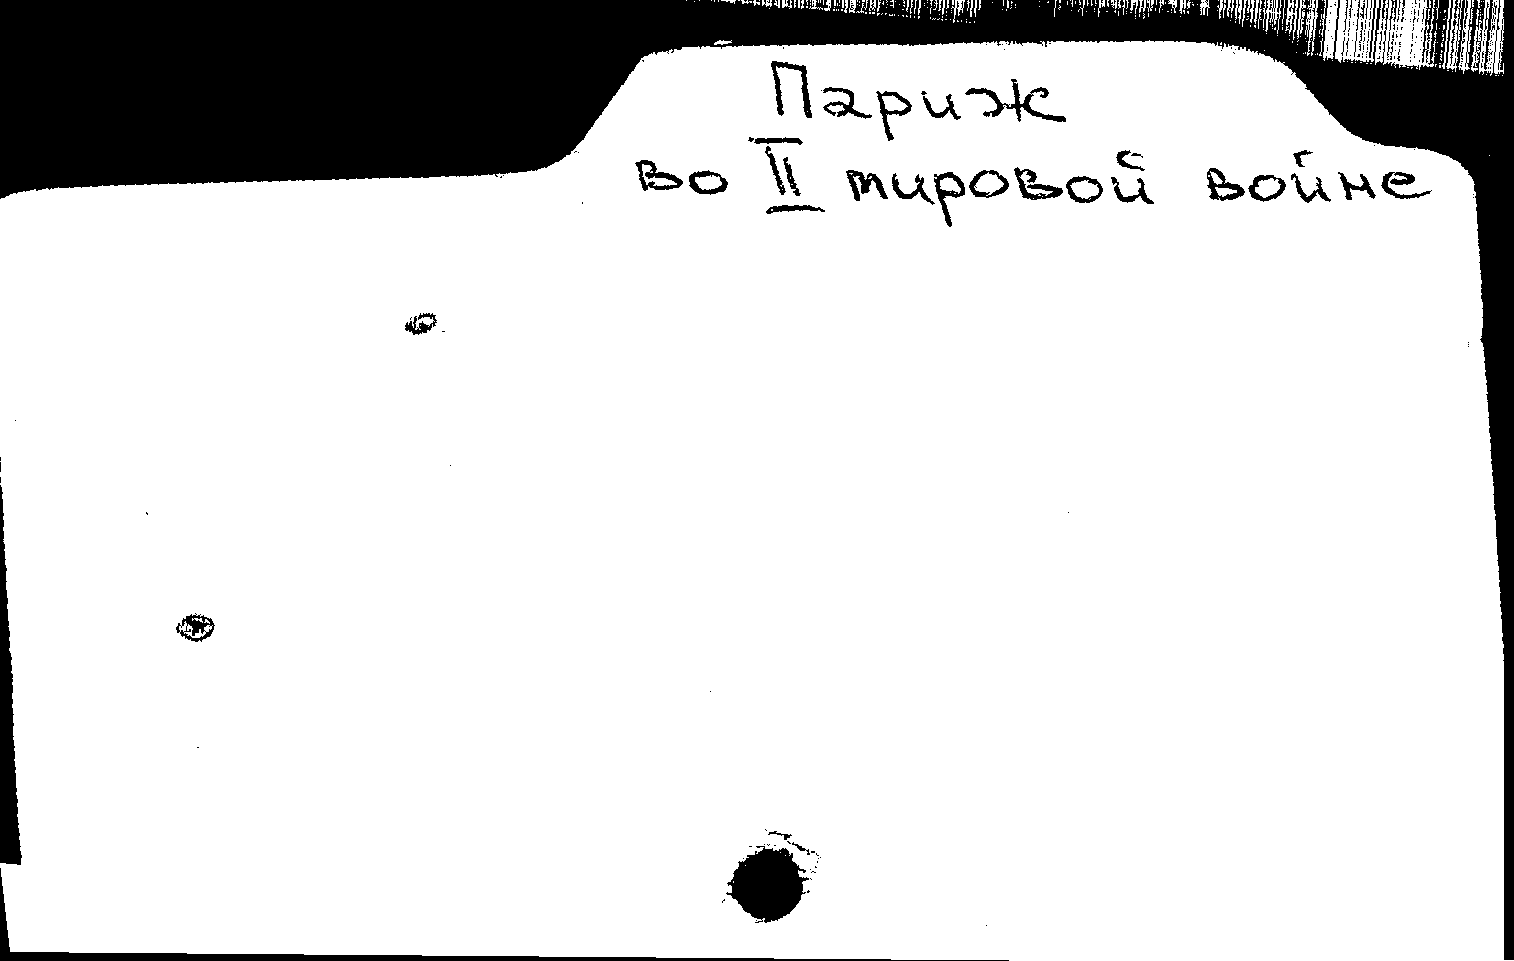 Париж
во II мировой войне